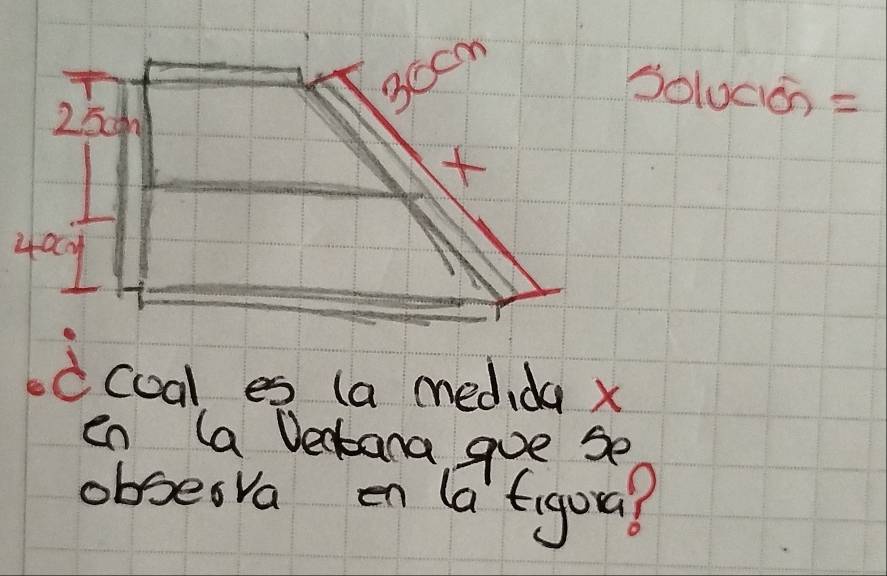 30cm
Solución =
25cm
x
40cm
¿coal es la medida x
en la Ventana que se
observa en la figura?